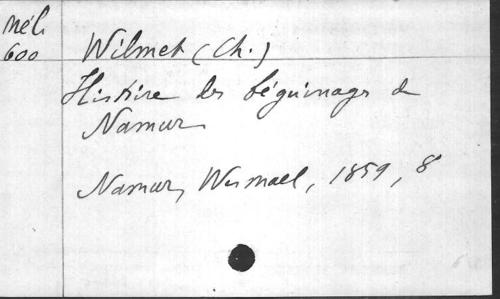 Mél.
600
Wilmet (Ch.)
Histoire des béguinages de
Namur
Namur, Wesmael, 1859, 8°